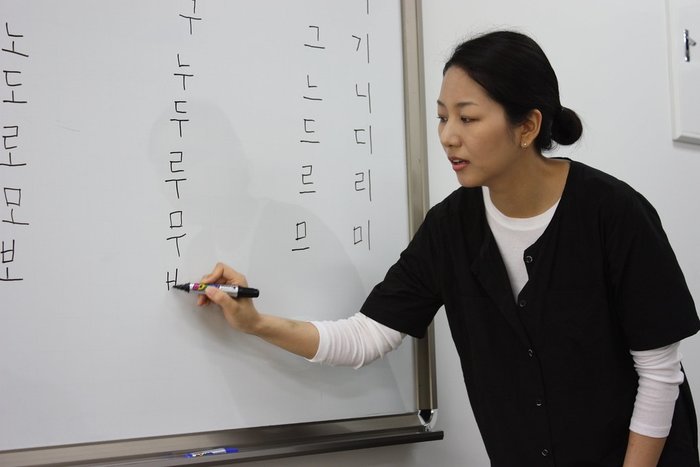 구 그 기
노 누 느 니
도 두 드 디
로 루 르 리
모 무 므 미
보 ㅂ